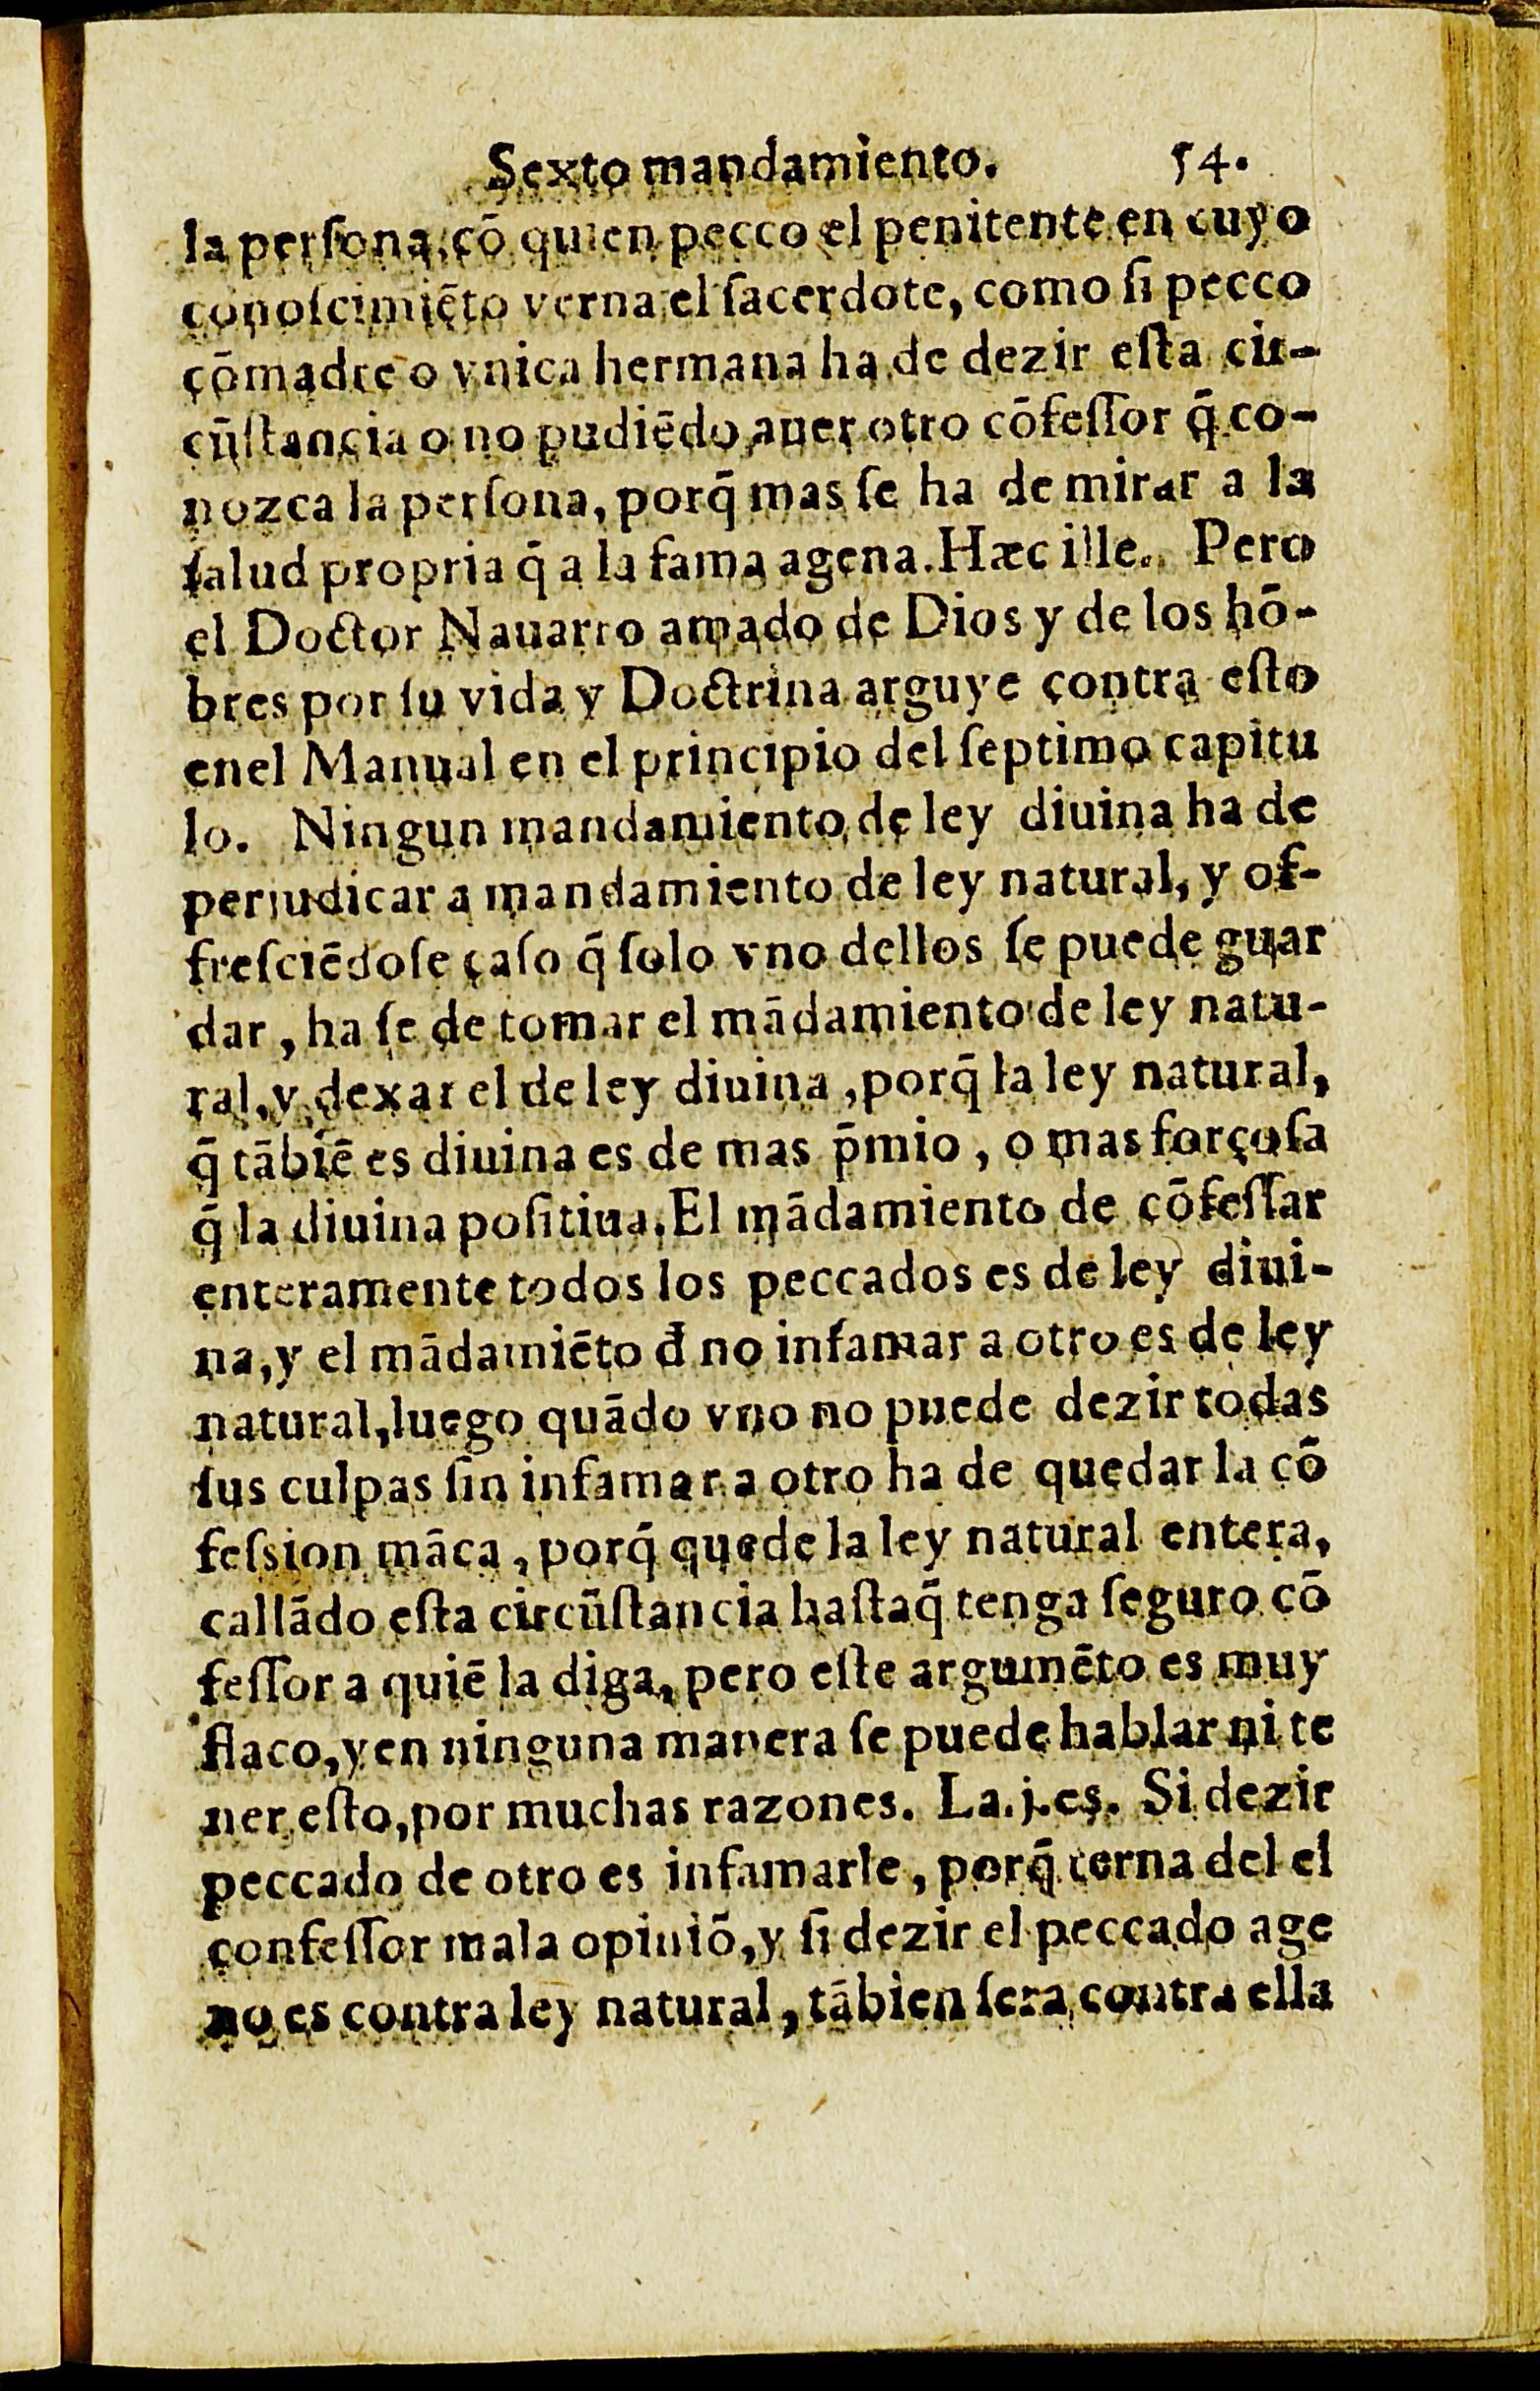 Sexto mandamiento. 54.
la perſona, cō quien pecco el penitente en cuyo
conoſcimiēto verna el ſacerdote, como ſi pecco
cō madre o vnica hermana ha de dezir eſta cir-
cūſtancia o no pudiēdo auer otro cōfeſſor q̄ co-
nozca la perſona, porq̄ mas ſe ha de mirar a la
ſalud propria q̄ a la fama agena. Hæc ille. Pero
el Doctor Nauarro amado de Dios y de los hō-
bres por ſu vida y Doctrina arguye contra eſto
enel Manual en el principio del ſeptimo capitu
lo. Ningun mandamiento de ley diuina ha de
perjudicar a mandamiento de ley natural, y of-
freſciēdoſe caſo q̄ ſolo vno dellos ſe puede guar
dar, ha ſe de tomar el mādamiento de ley natu-
ral, y dexar el de ley diuina, porq̄ la ley natural,
q̄ tābiē es diuina es de mas p̄mio, o mas forçoſa
q̄ la diuina poſitiua. El mādamiento de cōfeſſar
enteramente todos los peccados es de ley diui-
na, y el mādamiēto đ no infamar a otro es de ley
natural, luego quādo vno no puede dezir todas
ſus culpas ſin infamar a otro ha de quedar la cō
feſsion māca, porq̄ quede la ley natural entera,
callādo eſta circūſtancia haſtaq̄ tenga ſeguro cō
feſſor a quiē la diga, pero eſte argumēto es muy
flaco, y en ninguna manera ſe puede hablar ni te
ner eſto, por muchas razones. La.j.es. Si dezir
peccado de otro es infamarle, porq̄ terna del el
confeſſor mala opiniō, y ſi dezir el peccado age
no es contra ley natural, tābien ſera contra ella